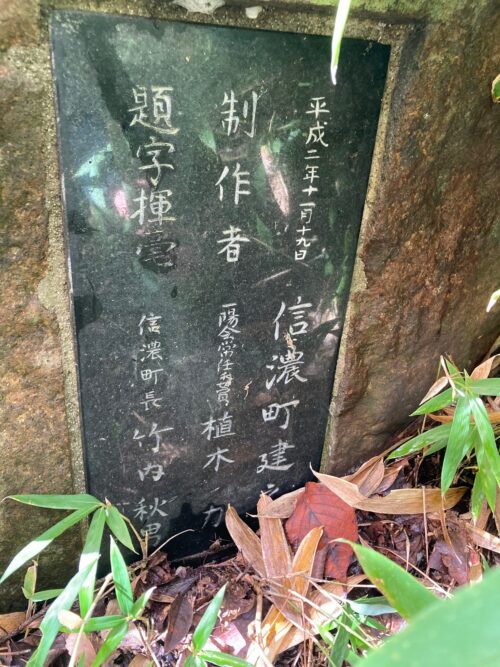 平成二年十一月十九日 信濃町建立
制作者 一陽会常任委員 植木 力
題字揮毫 信濃町長 竹内秋男